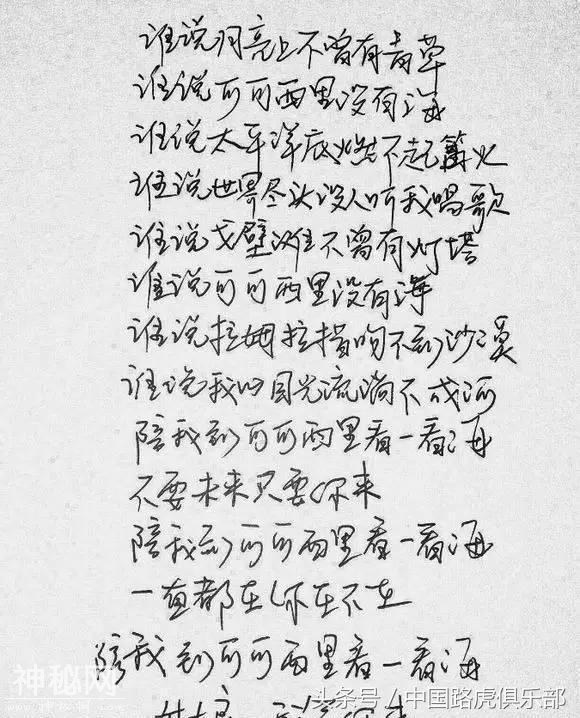 谁说月亮上不曾有青草
谁说可可西里没有海
谁说太平洋底燃不起篝火
谁说世界尽头没人听我唱歌
谁说戈壁滩不曾有灯塔
谁说可可西里没有海
谁说拉姆拉措吻不到沙漠
谁说我的目光流淌不成河
陪我到可可西里看一看海
不要未来只要你来
陪我到可可西里看一看海
一直都在你在不在
陪我到可可西里看一看海
神秘网
头条号/中国路虎俱乐部